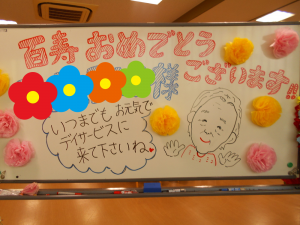 百寿 おめでとう
様 ございます!!
いつまでも お元気で
デイサービスに
来て下さいね